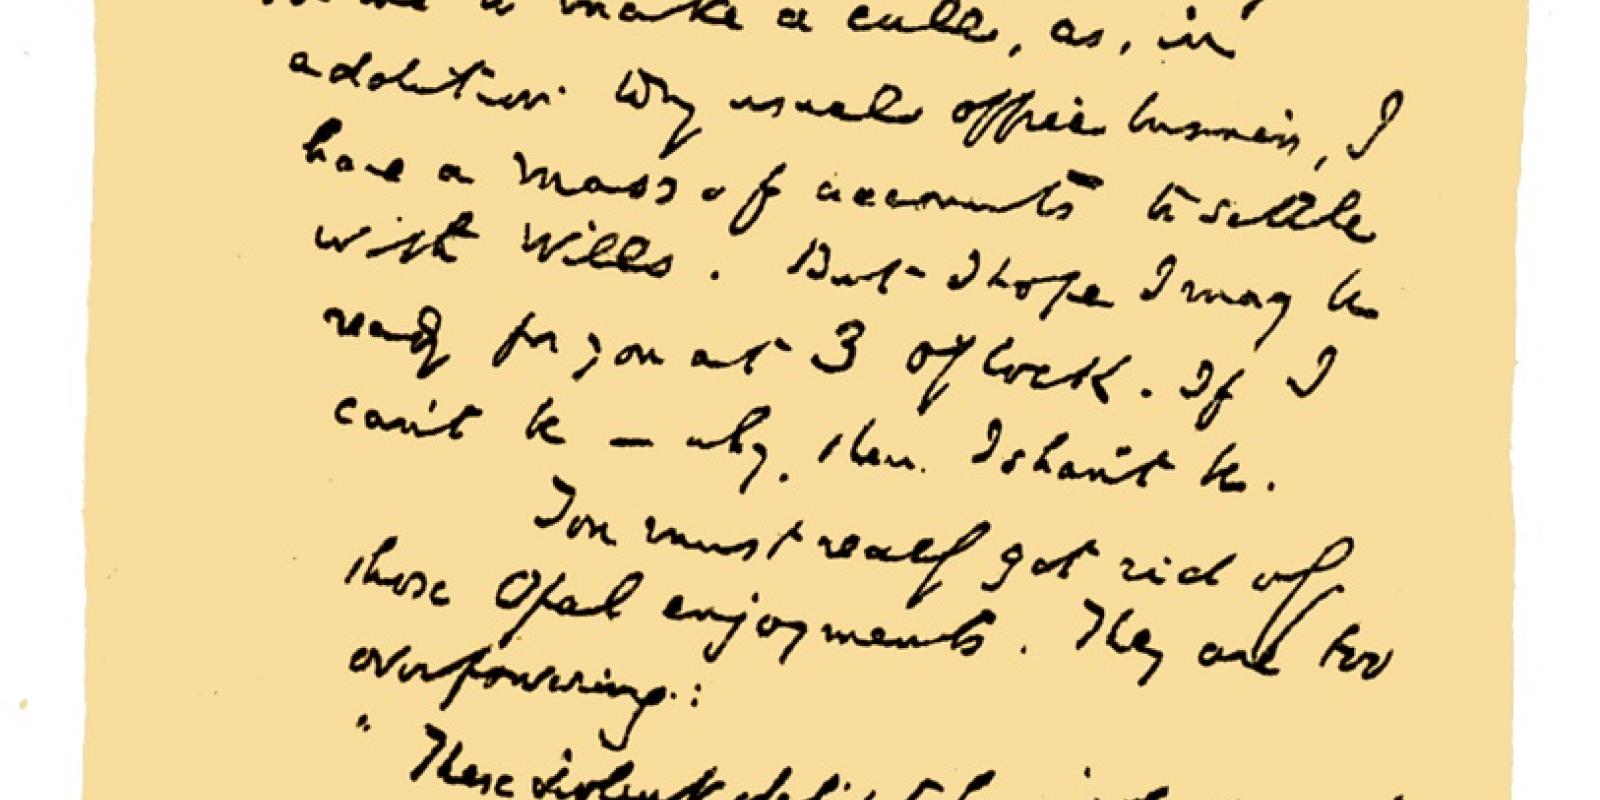 to make a call, as, in
addition to my usual office business, I
have a mass of accounts to settle
with Wills. But I hope I may be
ready for you at 3 o'clock. If I
can't be — why, then I shan't be.
You must really get rid of
those Opal enjoyments. They are too
overpowering:
"These violent delights have